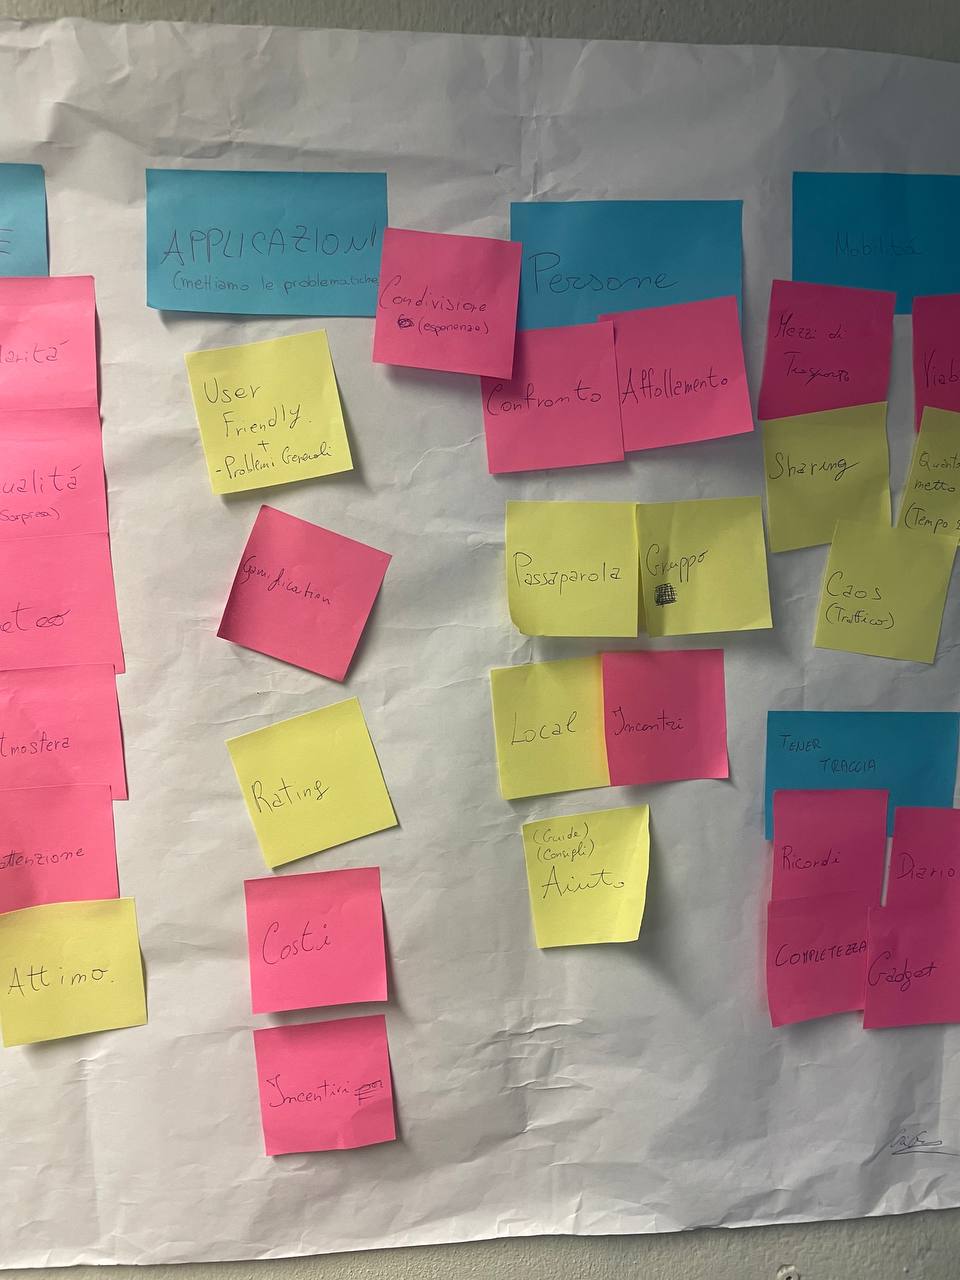 E
larità
ualità
(Sorpresa)
eteo
tmosfera
attenzione
Attimo.
APPLICAZIONI
(mettiamo le problematiche
User
Friendly.
+
- Problemi Generali
Gamification
Rating
Costi
Incentivi
Condivisione
(esperienze)
Persone
Confronto
Affollamento
Passaparola
Gruppo
Local
Incontri
(Guide)
(Consigli)
Aiuto
Mobilità
Mezzi di
Trasporto
Viab
Sharing
Quanto
metto
(Tempo
Caos
(Traffico)
TENER
TRACCIA
Ricordi
Diario
COMPLETEZZA
Gadget